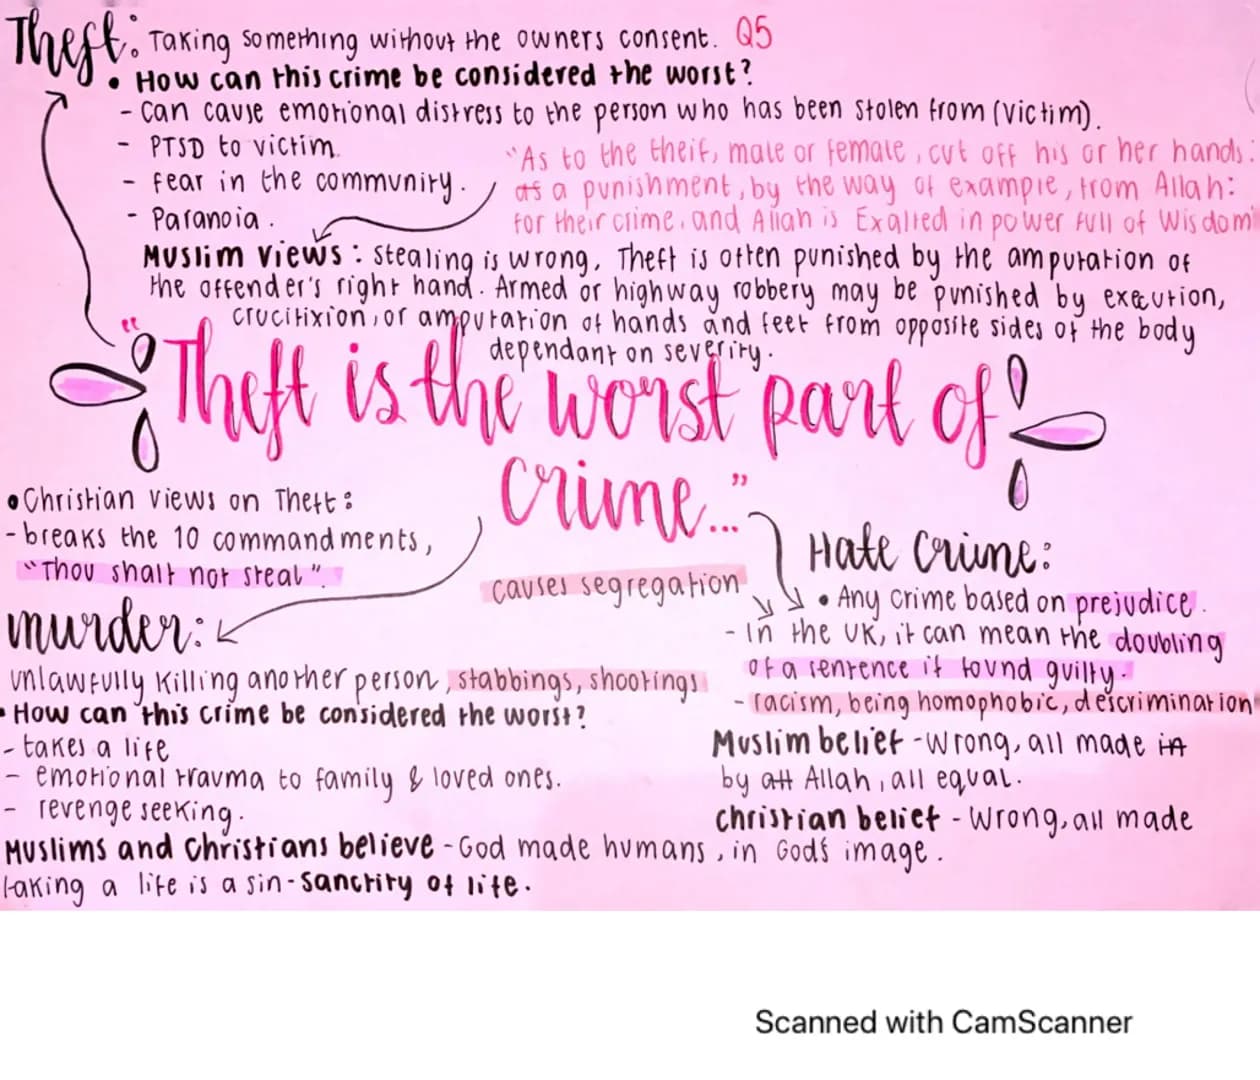 Theft: Taking something without the owners consent. Q5
• How can this crime be considered the worst?
- can cause emotional distress to the person who has been stolen from (victim).
- PTSD to victim.
- fear in the community.
- Paranoia.
"As to the theif, male or female, cut off his or her hands:
as a punishment, by the way of example, from Allah:
for their crime, and Allah is Exalted in power full of Wisdom
Muslim views: stealing is wrong. Theft is often punished by the amputation of
the offender's right hand. Armed or highway robbery may be punished by execution,
crucifixion, or amputation of hands and feet from opposite sides of the body
dependant on severity.
"Theft is the worst part of
crime..."
• Christian views on Theft:
- breaks the 10 commandments,
"Thou shalt not steal".
murder:
unlawfully killing another person, stabbings, shootings
• How can this crime be considered the worst?
- takes a life
- emotional trauma to family & loved ones.
- revenge seeking.
Muslims and Christians believe - God made humans, in God's image.
taking a life is a sin - sanctity of life.
causes segregation
Hate crime:
• Any crime based on prejudice.
- In the UK, it can mean the doubling
of a sentence if found guilty.
- racism, being homophobic, descrimination
Muslim belief - wrong, all made in
by all Allah, all equal.
christian belief - wrong, all made
Scanned with CamScanner